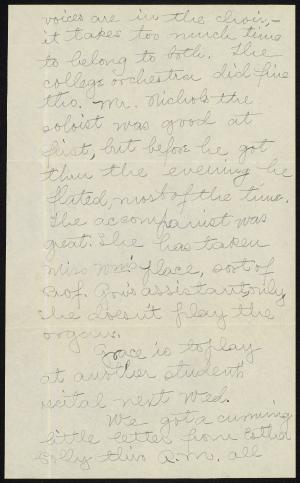 voices are in the choir,-
it takes too much time
to belong to both. The
college orchestra did fine
tho. Mr. Nichols the
soloist was good at
first, but before he got
thru the evening he
flated, most of the time.
The accompanist was
great. She has taken
Miss place, sort of
Prof. assistant, only
she doesn't play the
organ.
Grace is to play
at another students
recital next Wed.
We got a cunning
little letter from Esther
this A.M. all